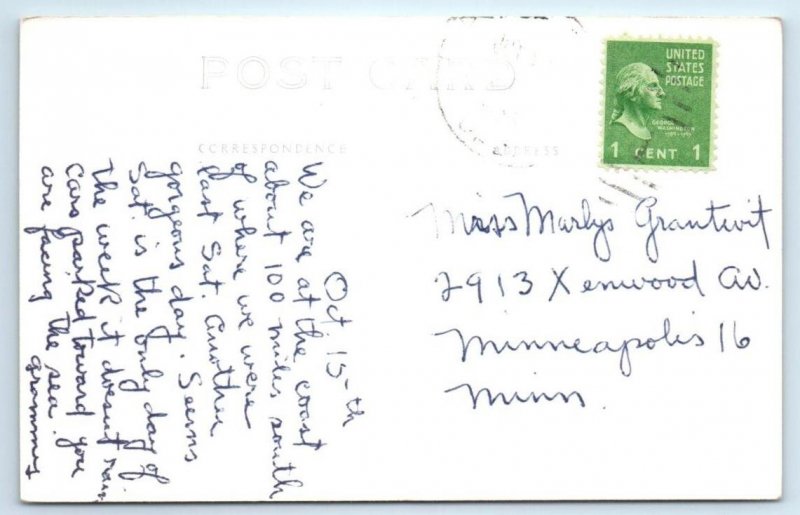 POST CARD
CORRESPONDENCE
ADDRESS
UNITED
STATES
POSTAGE
GEORGE
WASHINGTON
1 CENT 1
Oct. 15-th
We are at the coast
about 100 miles south
of where we were
last Sat. Another
gorgeous day. Seems
Sat. is the only day of
the week it doesnt rain
Cars parked toward you
are facing the sea.
grammy
Miss Marlys Grantwit
2913 Xenwood Av.
Minneapolis 16
Minn.